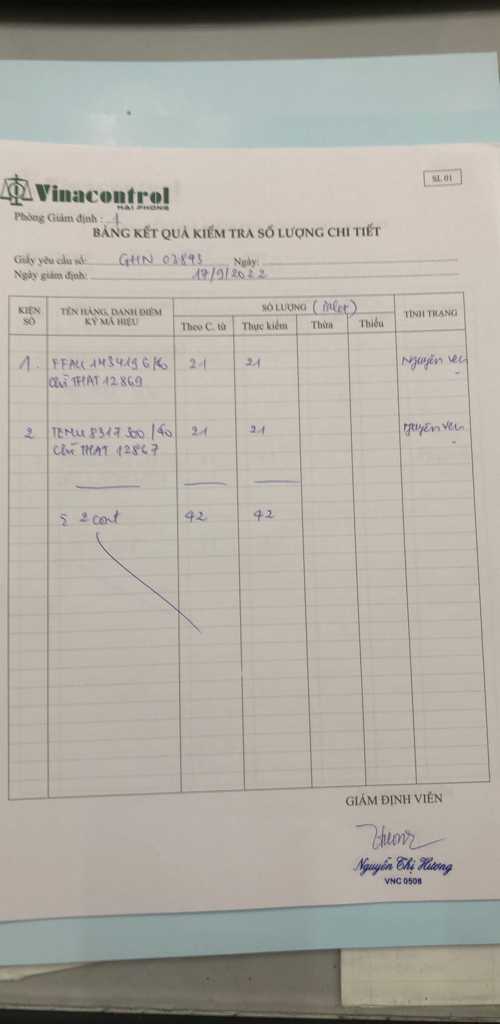 SL 01
Vinacontrol
HAI PHONG
Phòng Giám định : 1
BẢNG KẾT QUẢ KIỂM TRA SỐ LƯỢNG CHI TIẾT
Giấy yêu cầu số: GHN 03893 Ngày:
Ngày giám định: 17/9/2022
KIỆN SỐ TÊN HÀNG, DANH ĐIỂM KÝ MÃ HIỆU SỐ LƯỢNG (Palet) TÌNH TRẠNG
Theo C. từ Thực kiểm Thừa Thiếu
1. FFAU 1434196/40 21 21 Nguyên vẹn
Chì THAT 12869
2 TEMU 8317500/40 21 21 Nguyên vẹn
Chì THAT 12867
2 cont 42 42
GIÁM ĐỊNH VIÊN
Nguyễn Thị Hương
VNC 0508